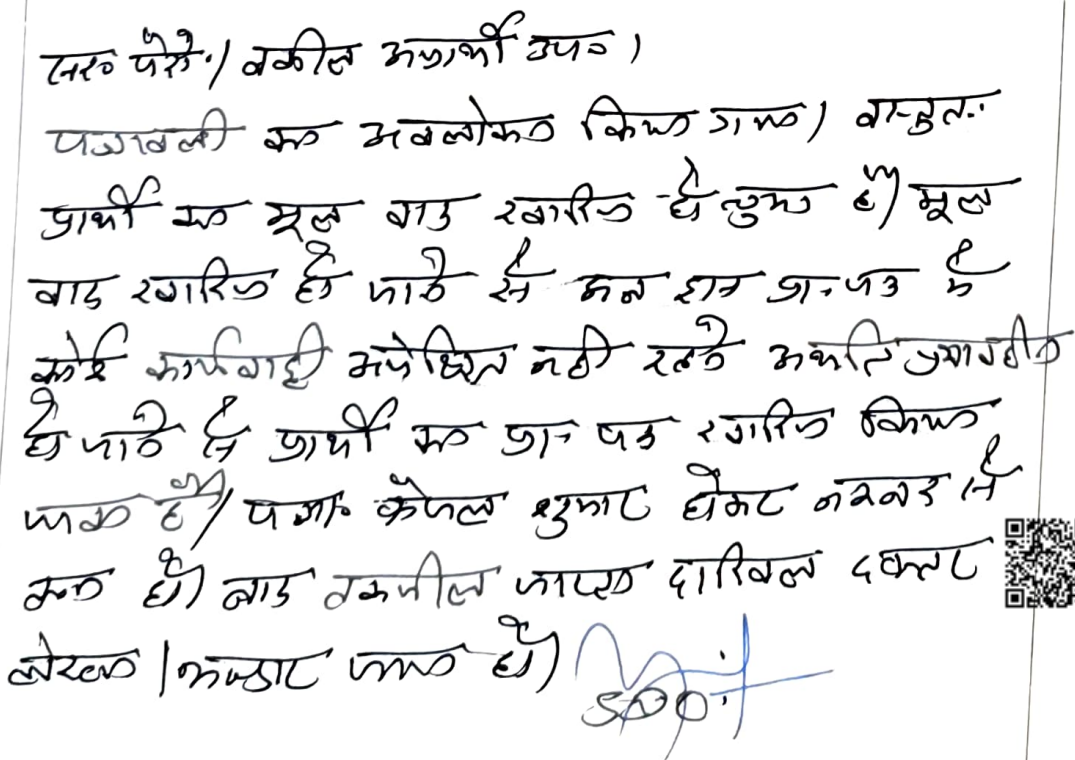 पेश। वकील अप्रार्थी उप०।
पत्रावली का अवलोकन किया गया। वस्तुतः
प्रार्थी का मूल वाद खारिज हो चुका है। मूल
वाद खारिज हो जाने से अब इस प्रा० पत्र में
कोई कार्यवाही अपेक्षित नहीं रहने अर्थात प्रभावहीन
हो जाने से प्रार्थी का प्रा० पत्र खारिज किया
जाता है। पत्रा० फैसल शुमार होकर नम्बर से
कम हो। बाद तकमील जाब्ता दाखिल दफ्तर
लेखा भण्डार जमा हो।
SDO.